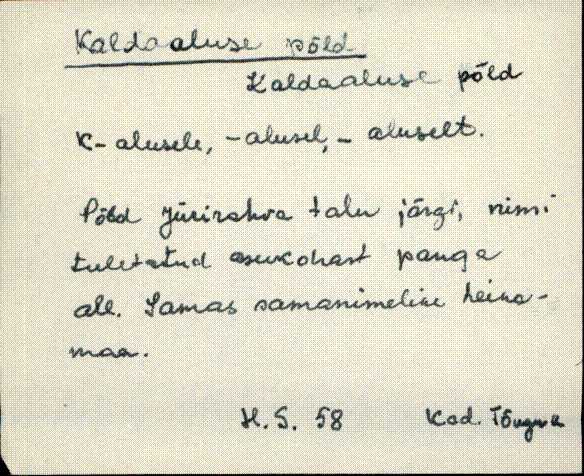 Kaldaaluse põld
Kaldaaluse põld
K- alusele, - alusel, - aluselt.
Põld Jürirahva talu järgi, nimi
tuletatud asukohast panga
all. Samas samanimeline heina-
maa.
H. S. 58 Kad. Tõugu